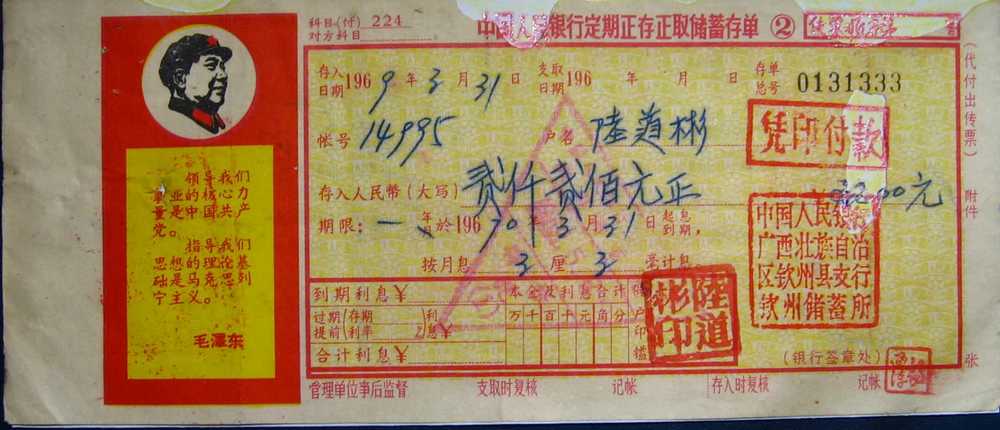 领导我们
力量
事业的核心
是中国共产
党。
指导我们
思想的理论基
础是马克思列
宁主义。
毛泽东
科目(付) 224
对方科目
中国人民银行定期正存正取储蓄存单 ②
存入日期 1969年3月31日
支取日期 196 年 月 日
存单总号 0131333
帐号 14995
户名 陸道彬
凭印付款
存入人民币(大写) 贰仟贰佰元正
元
期限：一年
於19670年3月31日起息到期，
按月息3厘3毫计息
中国人民银行
广西壮族自治
区钦州县支行
钦州储蓄所
到期利息¥
本金及利息合计
过期(存期
提前(利率
利息¥
万千百十元角分
合计利息¥
陸道彬印
(银行签章处)
管理单位事后监督
支取时复核
记帐
存入时复核
记帐
(代付出传票)
附件
张